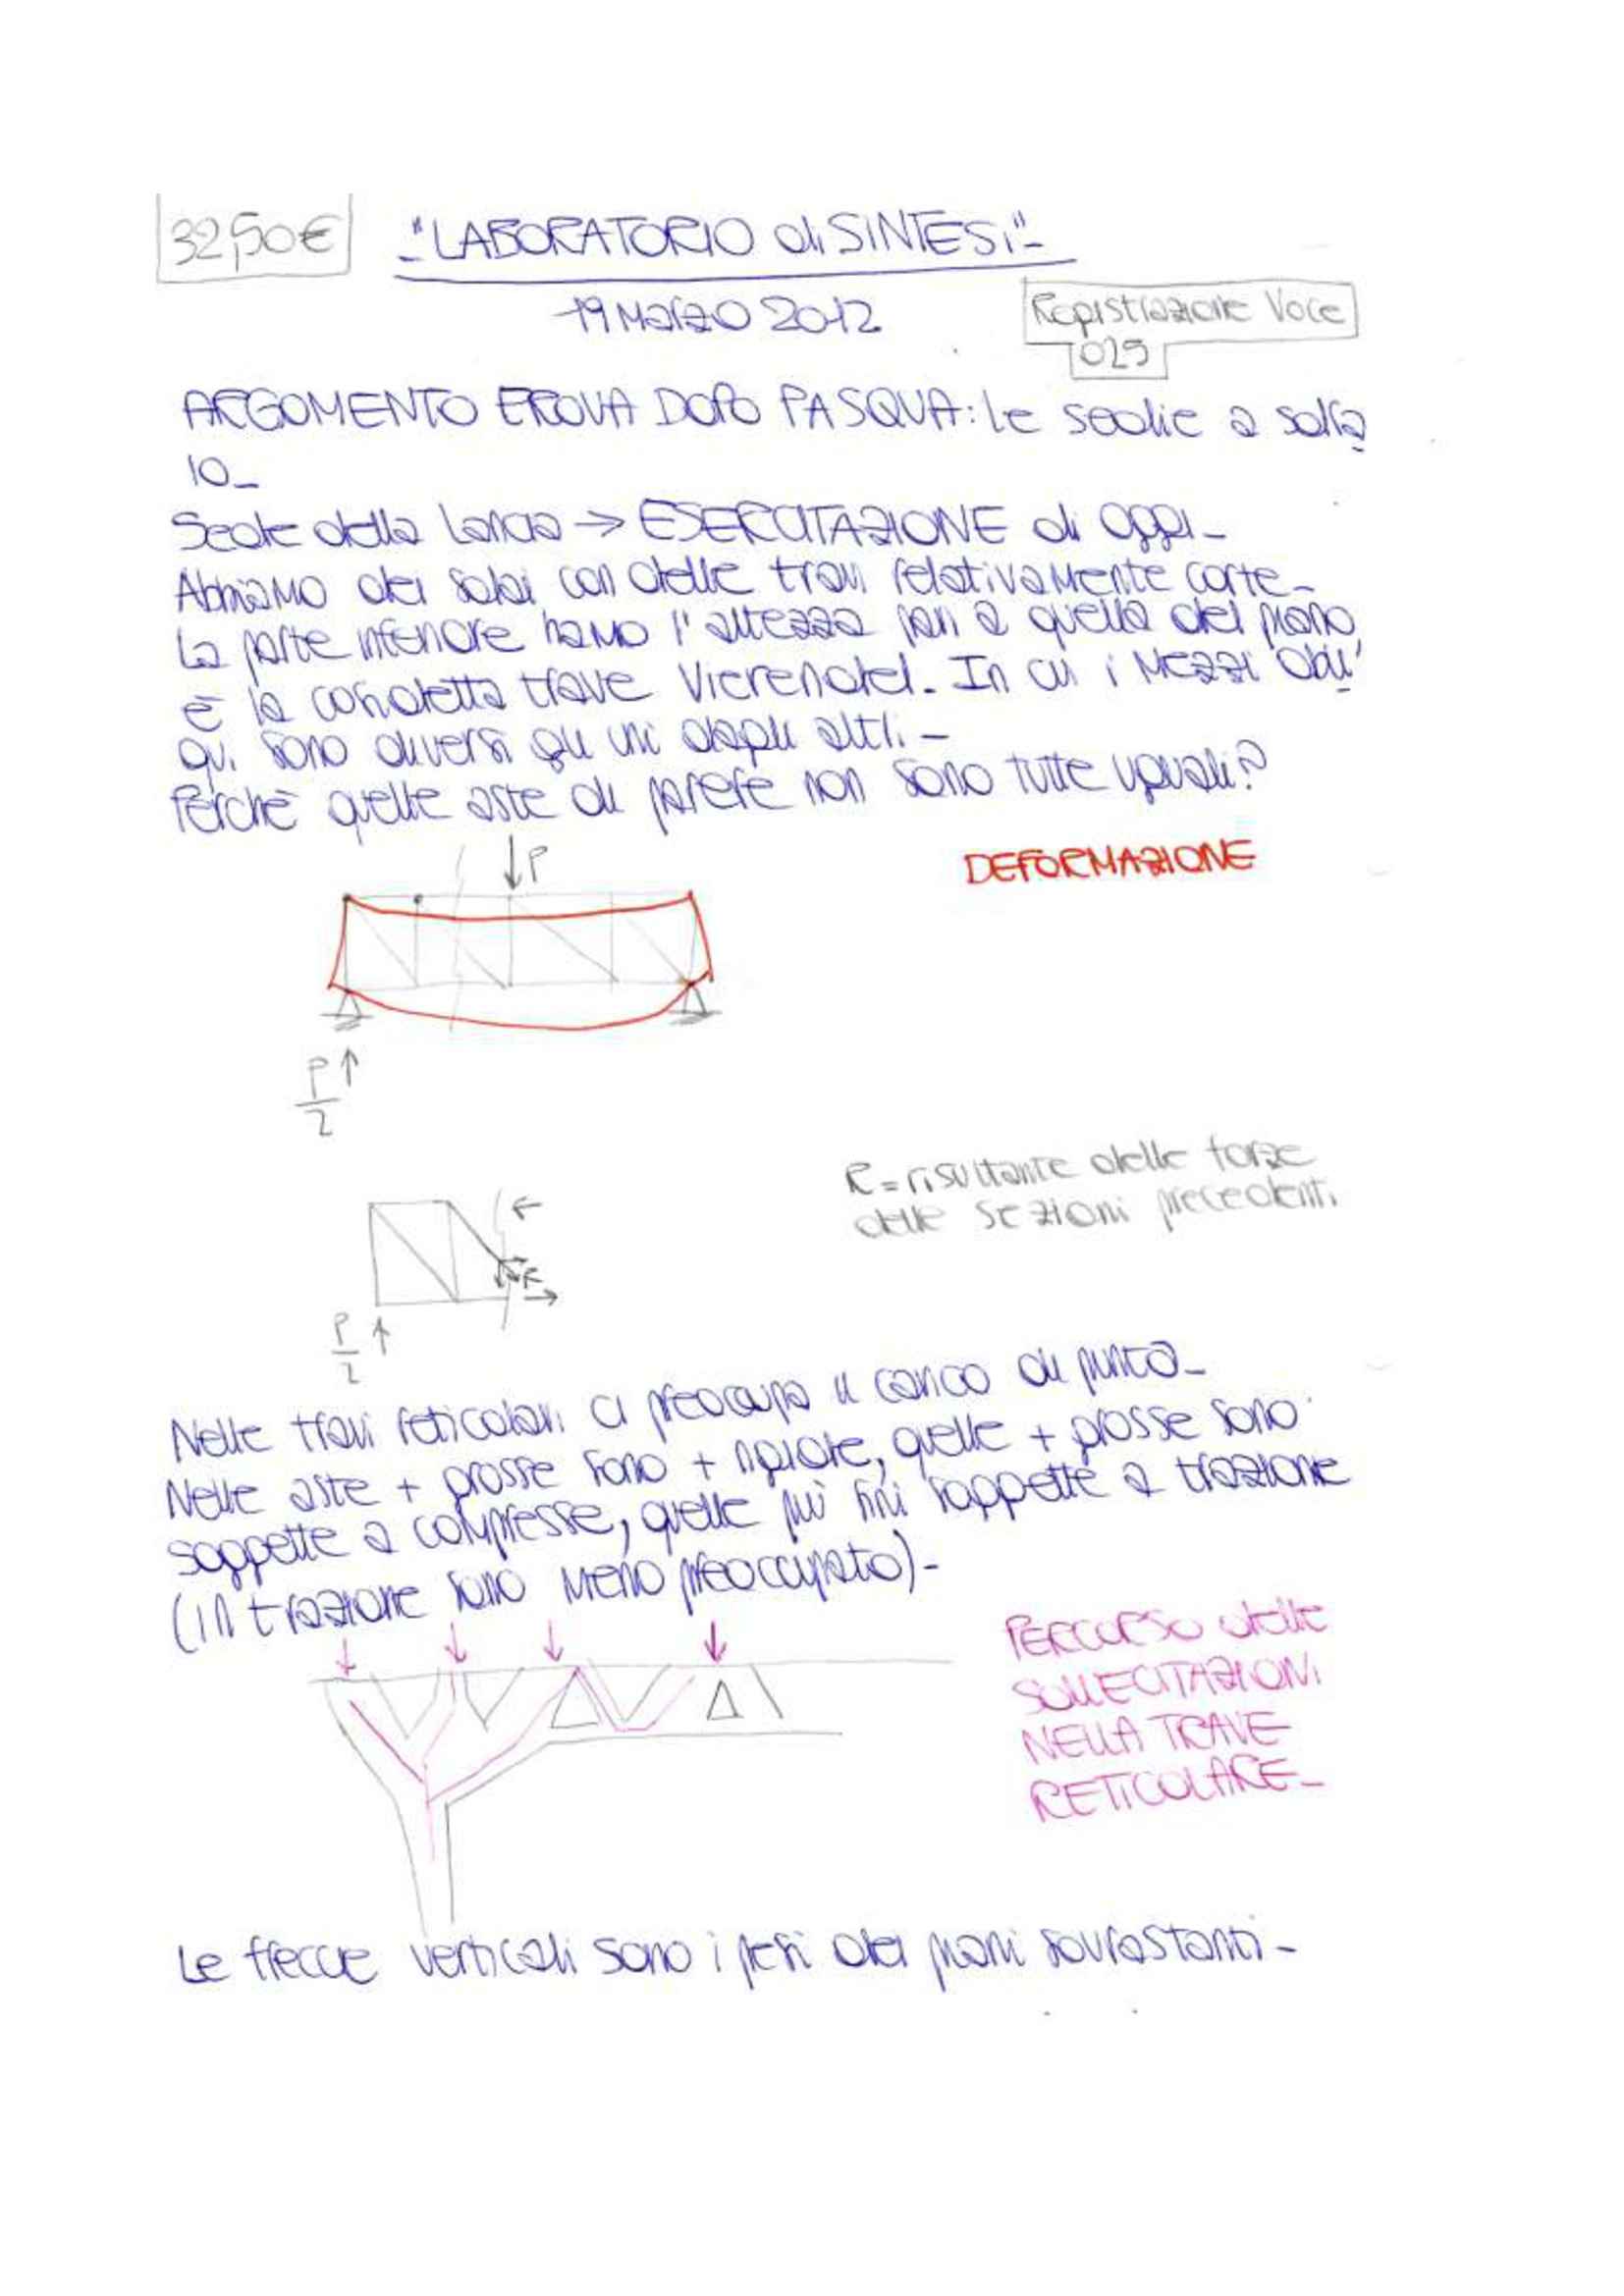 32,50€
"LABORATORIO di SINTESI"
19 Marzo 2012
Registrazione Voce
025
ARGOMENTO PROVA DOPO PASQUA: Le scale a
10_
Sede della Lancia → ESERCITAZIONE di oggi_
Abbiamo dei solai con delle travi relativamente corte_
La parte inferiore hanno l'altezza pari a quella del piano,
è la cosiddetta trave Vierendel. In cui i mezzi obli
qui sono diversi gli uni dagli altri_
Perchè quelle aste di parete non sono tutte uguali?
P
DEFORMAZIONE
P
2
R = risultante delle forze
delle sezioni precedenti.
R
P
2
Nelle travi reticolari ci preoccupa il carico di punta_
Nelle aste + grosse sono + rigide, quelle + grosse sono
soggette a compresse, quelle più fini soggette a trazione
(in trazione sono meno preoccupato)_
PERCORSO delle
SOLLECITAZIONI
NELLA TRAVE
RETICOLARE_
Le frecce verticali sono i pesi dei piani sovrastanti_